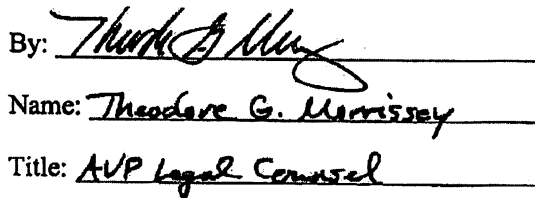 By:
Name: Theodore G. Morrissey
Title: AVP Legal Counsel